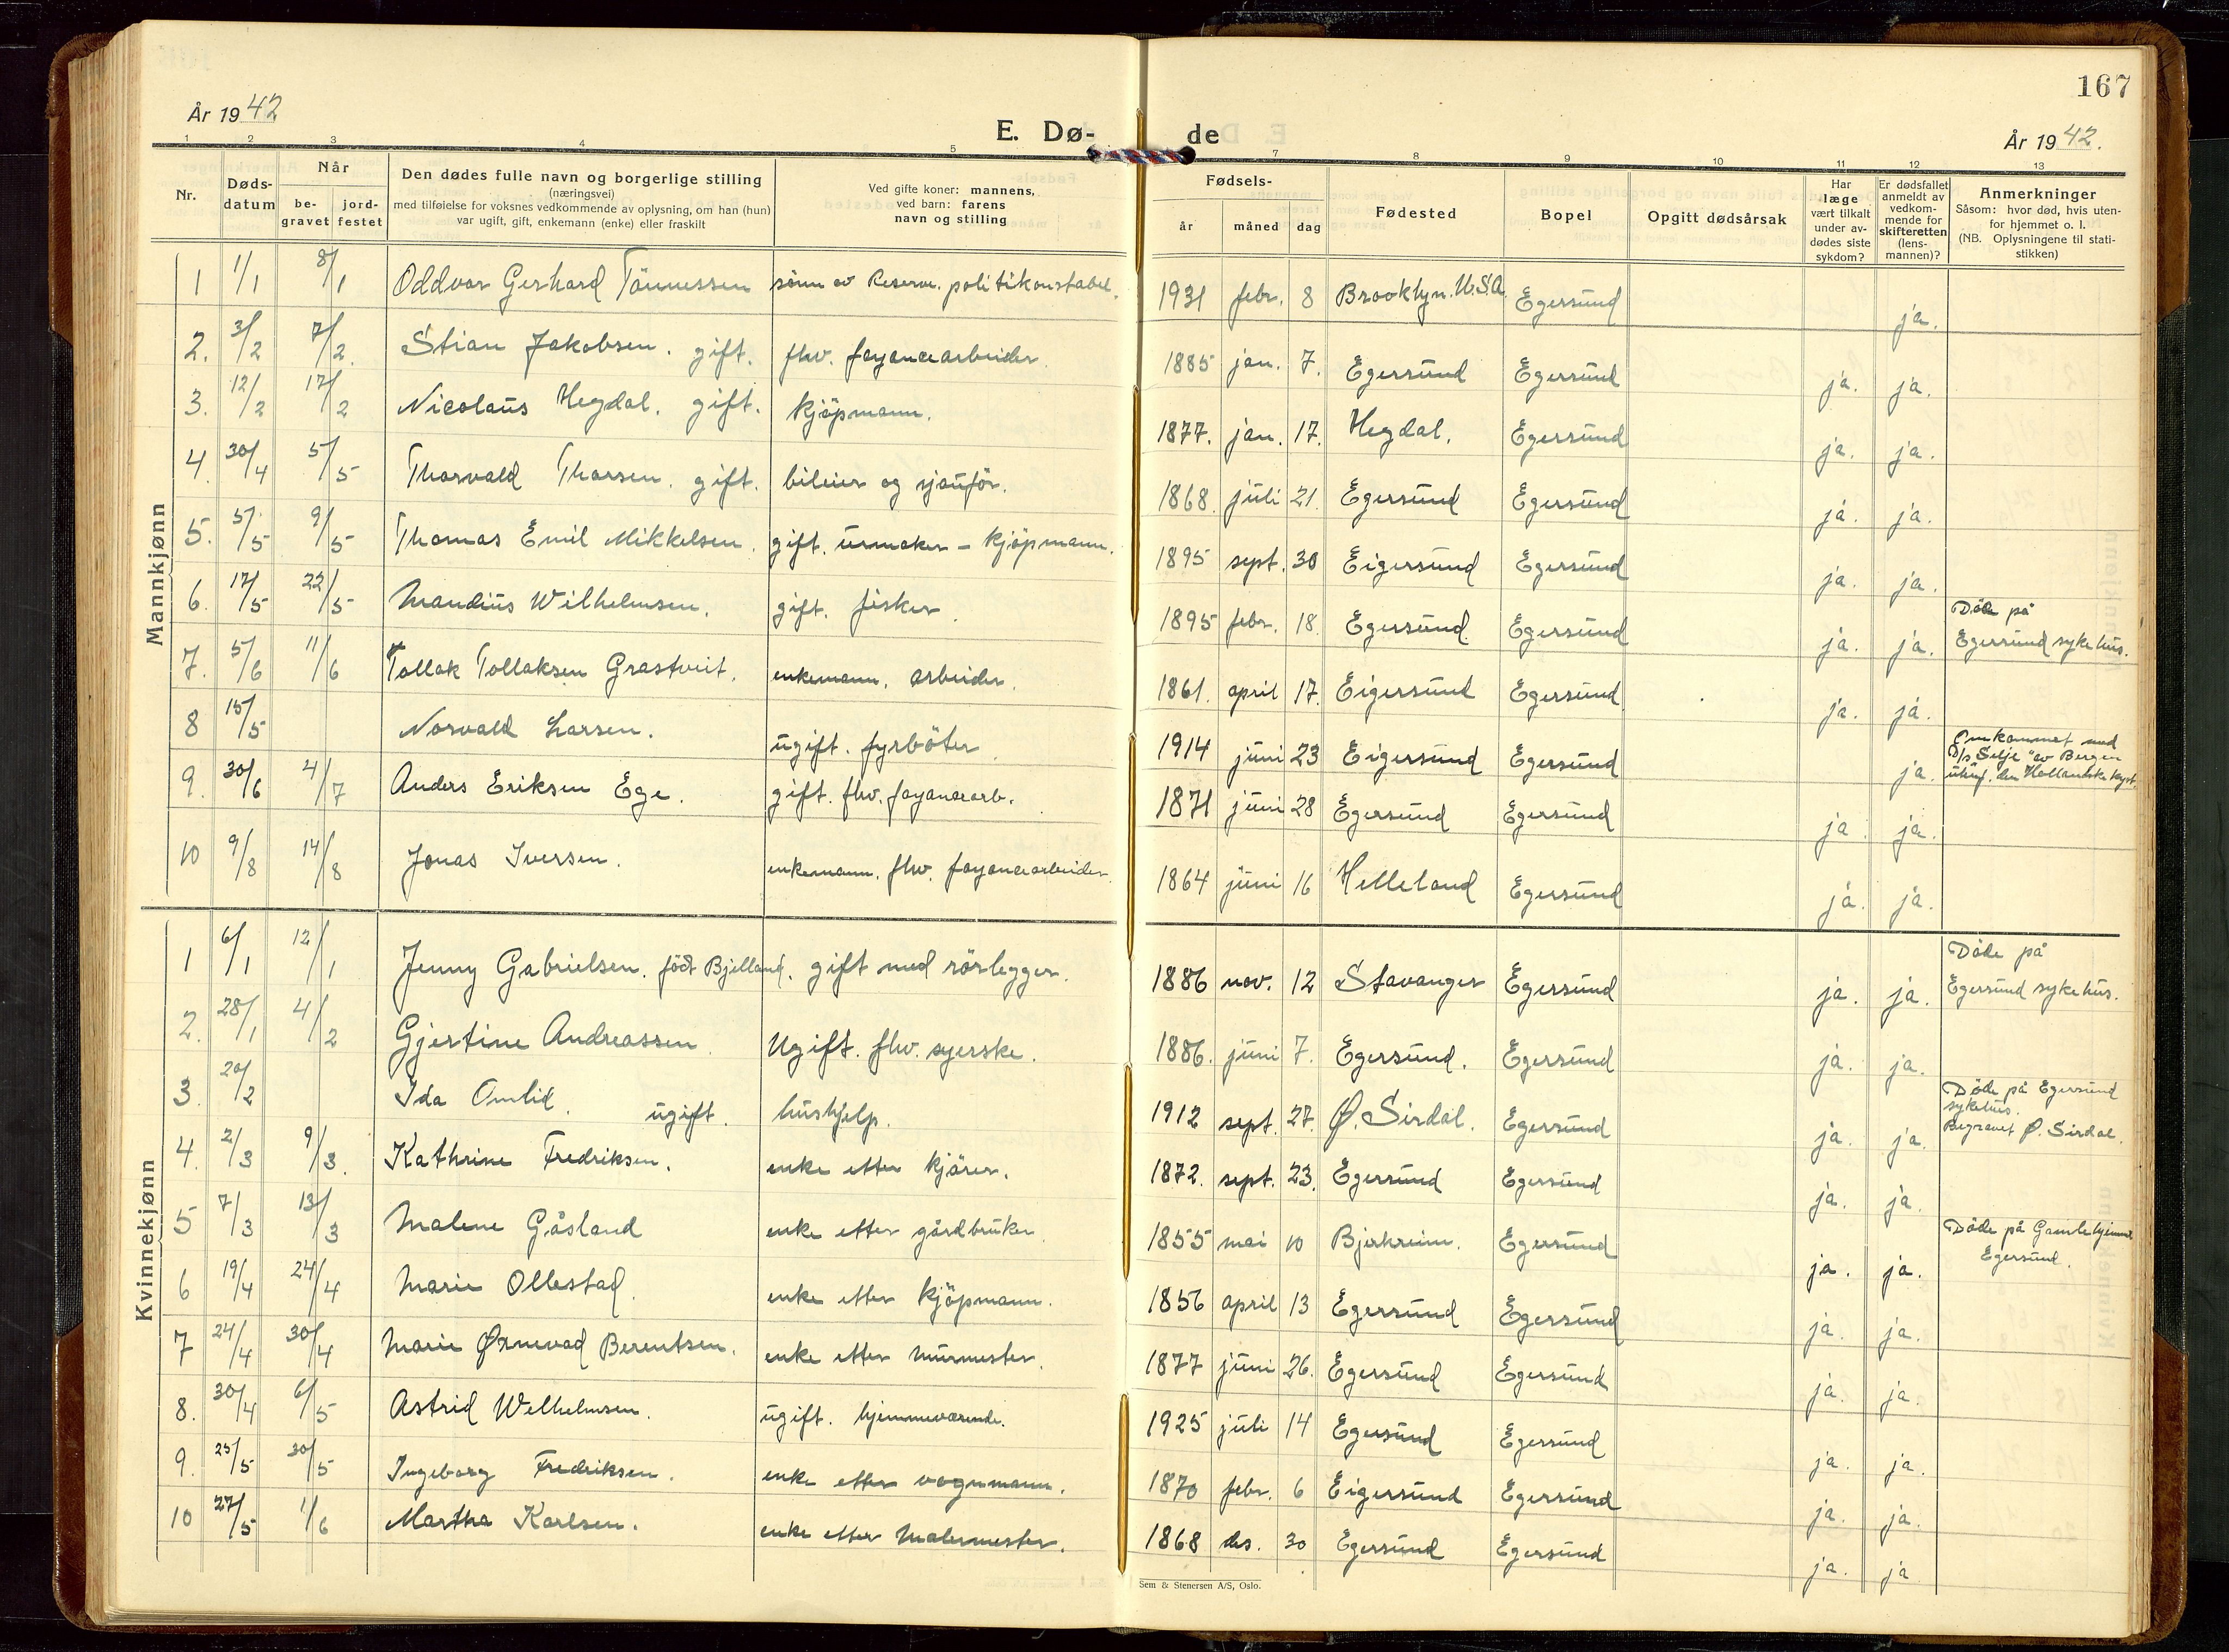 167
År 1942
E. Dø-de
År 1942.
1 2 3 4 5 7 8 9 10 11 12 13
Nr.
Døds-datum
Når
be-gravet
jord-festet
Den dødes fulle navn og borgerlige stilling
(næringsvei)
med tilføielse for voksnes vedkommende av oplysning, om han (hun)
var ugift, gift, enkemann (enke) eller fraskilt
Ved gifte koner: mannens,
ved barn: farens
navn og stilling
Fødsels-
år måned dag
Fødested
Bopel
Opgitt dødsårsak
Har
læge
vært tilkalt
under av-
dødes siste
sykdom?
Er dødsfallet
anmeldt av
vedkom-
mende for
skifteretten
(lens-
mannen)?
Anmerkninger
Såsom: hvor død, hvis uten-
for hjemmet o. l.
(NB. Oplysningene til stati-
stikken)
Mannkjønn
1 1/1 8/1 Oddvar Gerhard Tönnessen sönn av Reserve. politikonstabel. 1931 febr. 8 Brooklyn. U.S.A. Egersund ja.
2. 3/2 7/2. Stian Jakobsen. gift. fhv. fayancearbeider. 1885 jan. 7. Egersund Egersund ja. ja.
3. 12/2 17/2 Nicolaus Hegdal. gift. kjöpmann. 1877. jan. 17. Hegdal. Egersund ja. ja.
4. 30/4 5/5 Thorvald Thorsen. gift. bileier og sjauför. 1868. juli 21. Egersund Egersund ja. ja.
5. 5/5 9/5 Thomas Emil Mikkelsen. gift. urmaker - kjöpmann. 1895 sept. 30 Eigersund Egersund ja. ja.
6. 17/5 22/5 Mandius Wilhelmsen. gift. fisker. 1895 febr. 18. Egersund Egersund ja. ja. Döde på
Egersund sykehus.
7. 5/6 11/6 Tollak Tollaksen Grastveit. enkemann. arbeider. 1861. april 17. Eigersund Egersund ja. ja.
8 15/5 Norvald Larsen. ugift. fyrböter. 1914 juni 23 Eigersund Egersund ja. Omkommet med
D/s "Selje" av Bergen
den Hollandske kyst.
9. 30/6 4/7 Anders Eriksen Ege. gift. fhv. fayancearb. 1871 juni 28 Egersund Egersund ja. ja.
10 9/8 14/8 Jonas Iversen. enkemann. fhv. fayancearbeider. 1864 juni 16 Helleland Egersund ja. ja.
Kvinnekjønn
1 6/1 12/1 Jenny Gabrielsen. födt Bjelland. gift med rörlegger. 1886 nov. 12 Stavanger Egersund ja. ja. Döde på
Egersund sykehus.
2. 28/1 4/2 Gjertine Andreassen Ugift. fhv. syerske. 1886. juni 7. Egersund. Egersund ja. ja.
3. 20/2 Ida Omlid. ugift. hushjelp. 1912 sept. 27. Ø. Sirdal. Egersund ja. ja. Döde på Egersund
sykehus.
Begravet Ø. Sirdal.
4. 2/3 9/3. Kathrine Fredriksen. enke etter kjörer. 1872. sept. 23. Egersund Egersund ja. ja.
5 7/3 13/3 Malene Gåsland enke etter gårdbruker. 1855 mai 10 Bjerkreim. Egersund ja. ja. Döde på Gamlehjemmet
Egersund.
6 19/4 24/4 Marie Ollestad. enke etter kjöpmann. 1856 april 13 Egersund Egersund ja. ja.
7 24/4 30/4 Marie Ørnevad Berentsen. enke etter murmester. 1877 juni 26. Egersund Egersund ja. ja.
8. 30/4 6/5 Astrid Welhelmsen. ugift. hjemmeværende. 1925 juli 14 Egersund Egersund ja. ja.
9. 25/5 30/5 Ingeborg Fredriksen. enke etter vognmann. 1870 febr. 6 Eigersund Egersund ja. ja.
10 27/5 1/6 Martha Karlsen. enke etter malermester. 1868 des. 30 Egersund Egersund ja. ja
Sem & Stenersen A/S, Oslo.